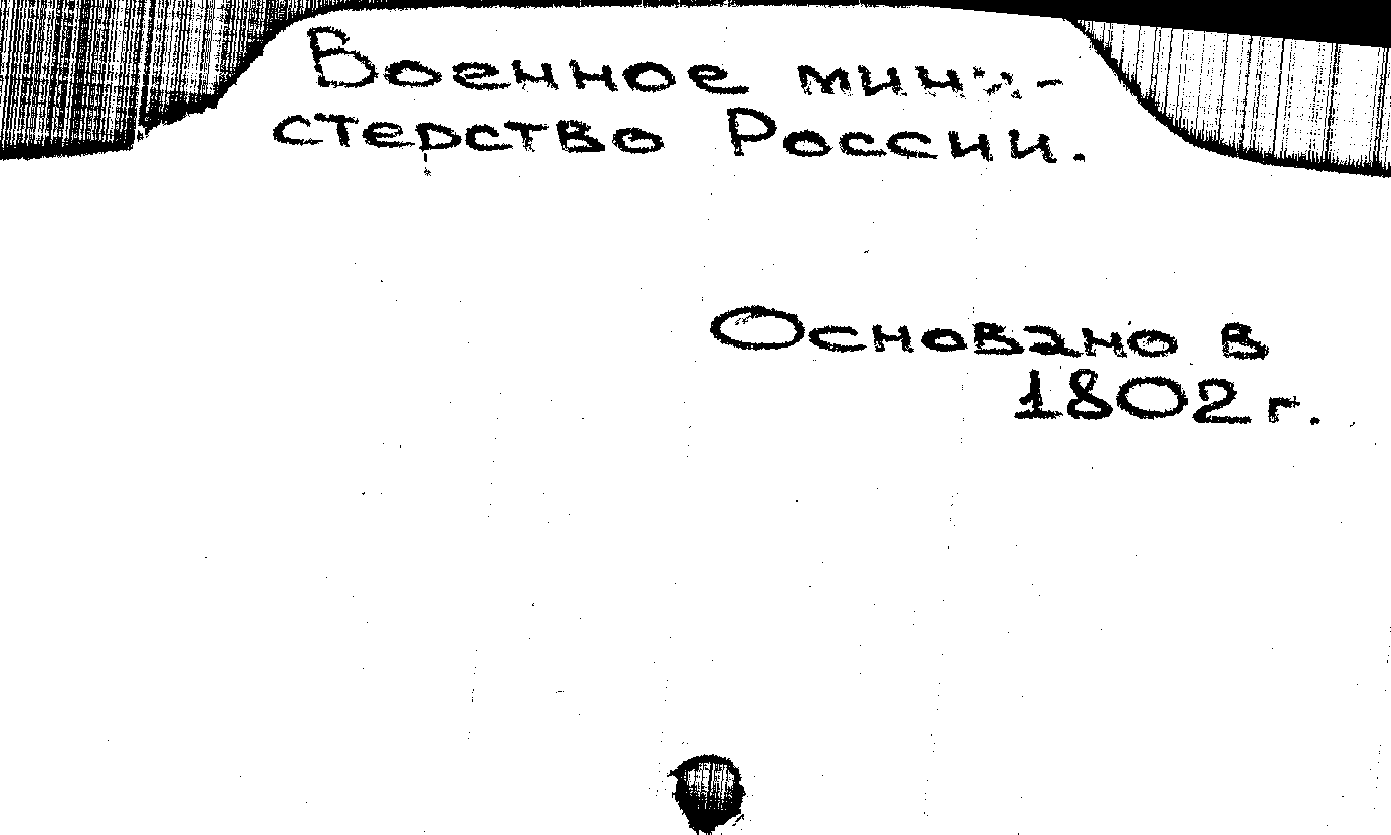 Военное мини-
стерство России.
Основано в
1802 г.